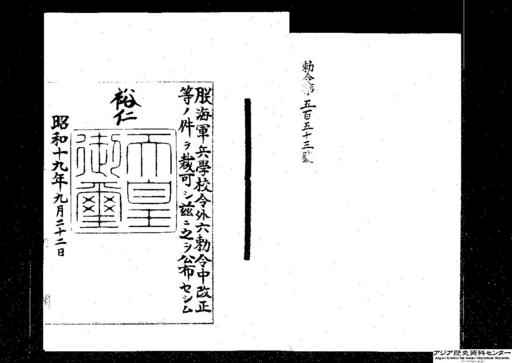 勅令第五百五十三號
朕海軍兵學校令外六勅令中改正
等ノ件ヲ裁可シ茲ニ之ヲ公布セシム
裕仁
天皇
御璽
昭和十九年九月二十二日
アジア歴史資料センター
Japan Center for Asian Historical Records